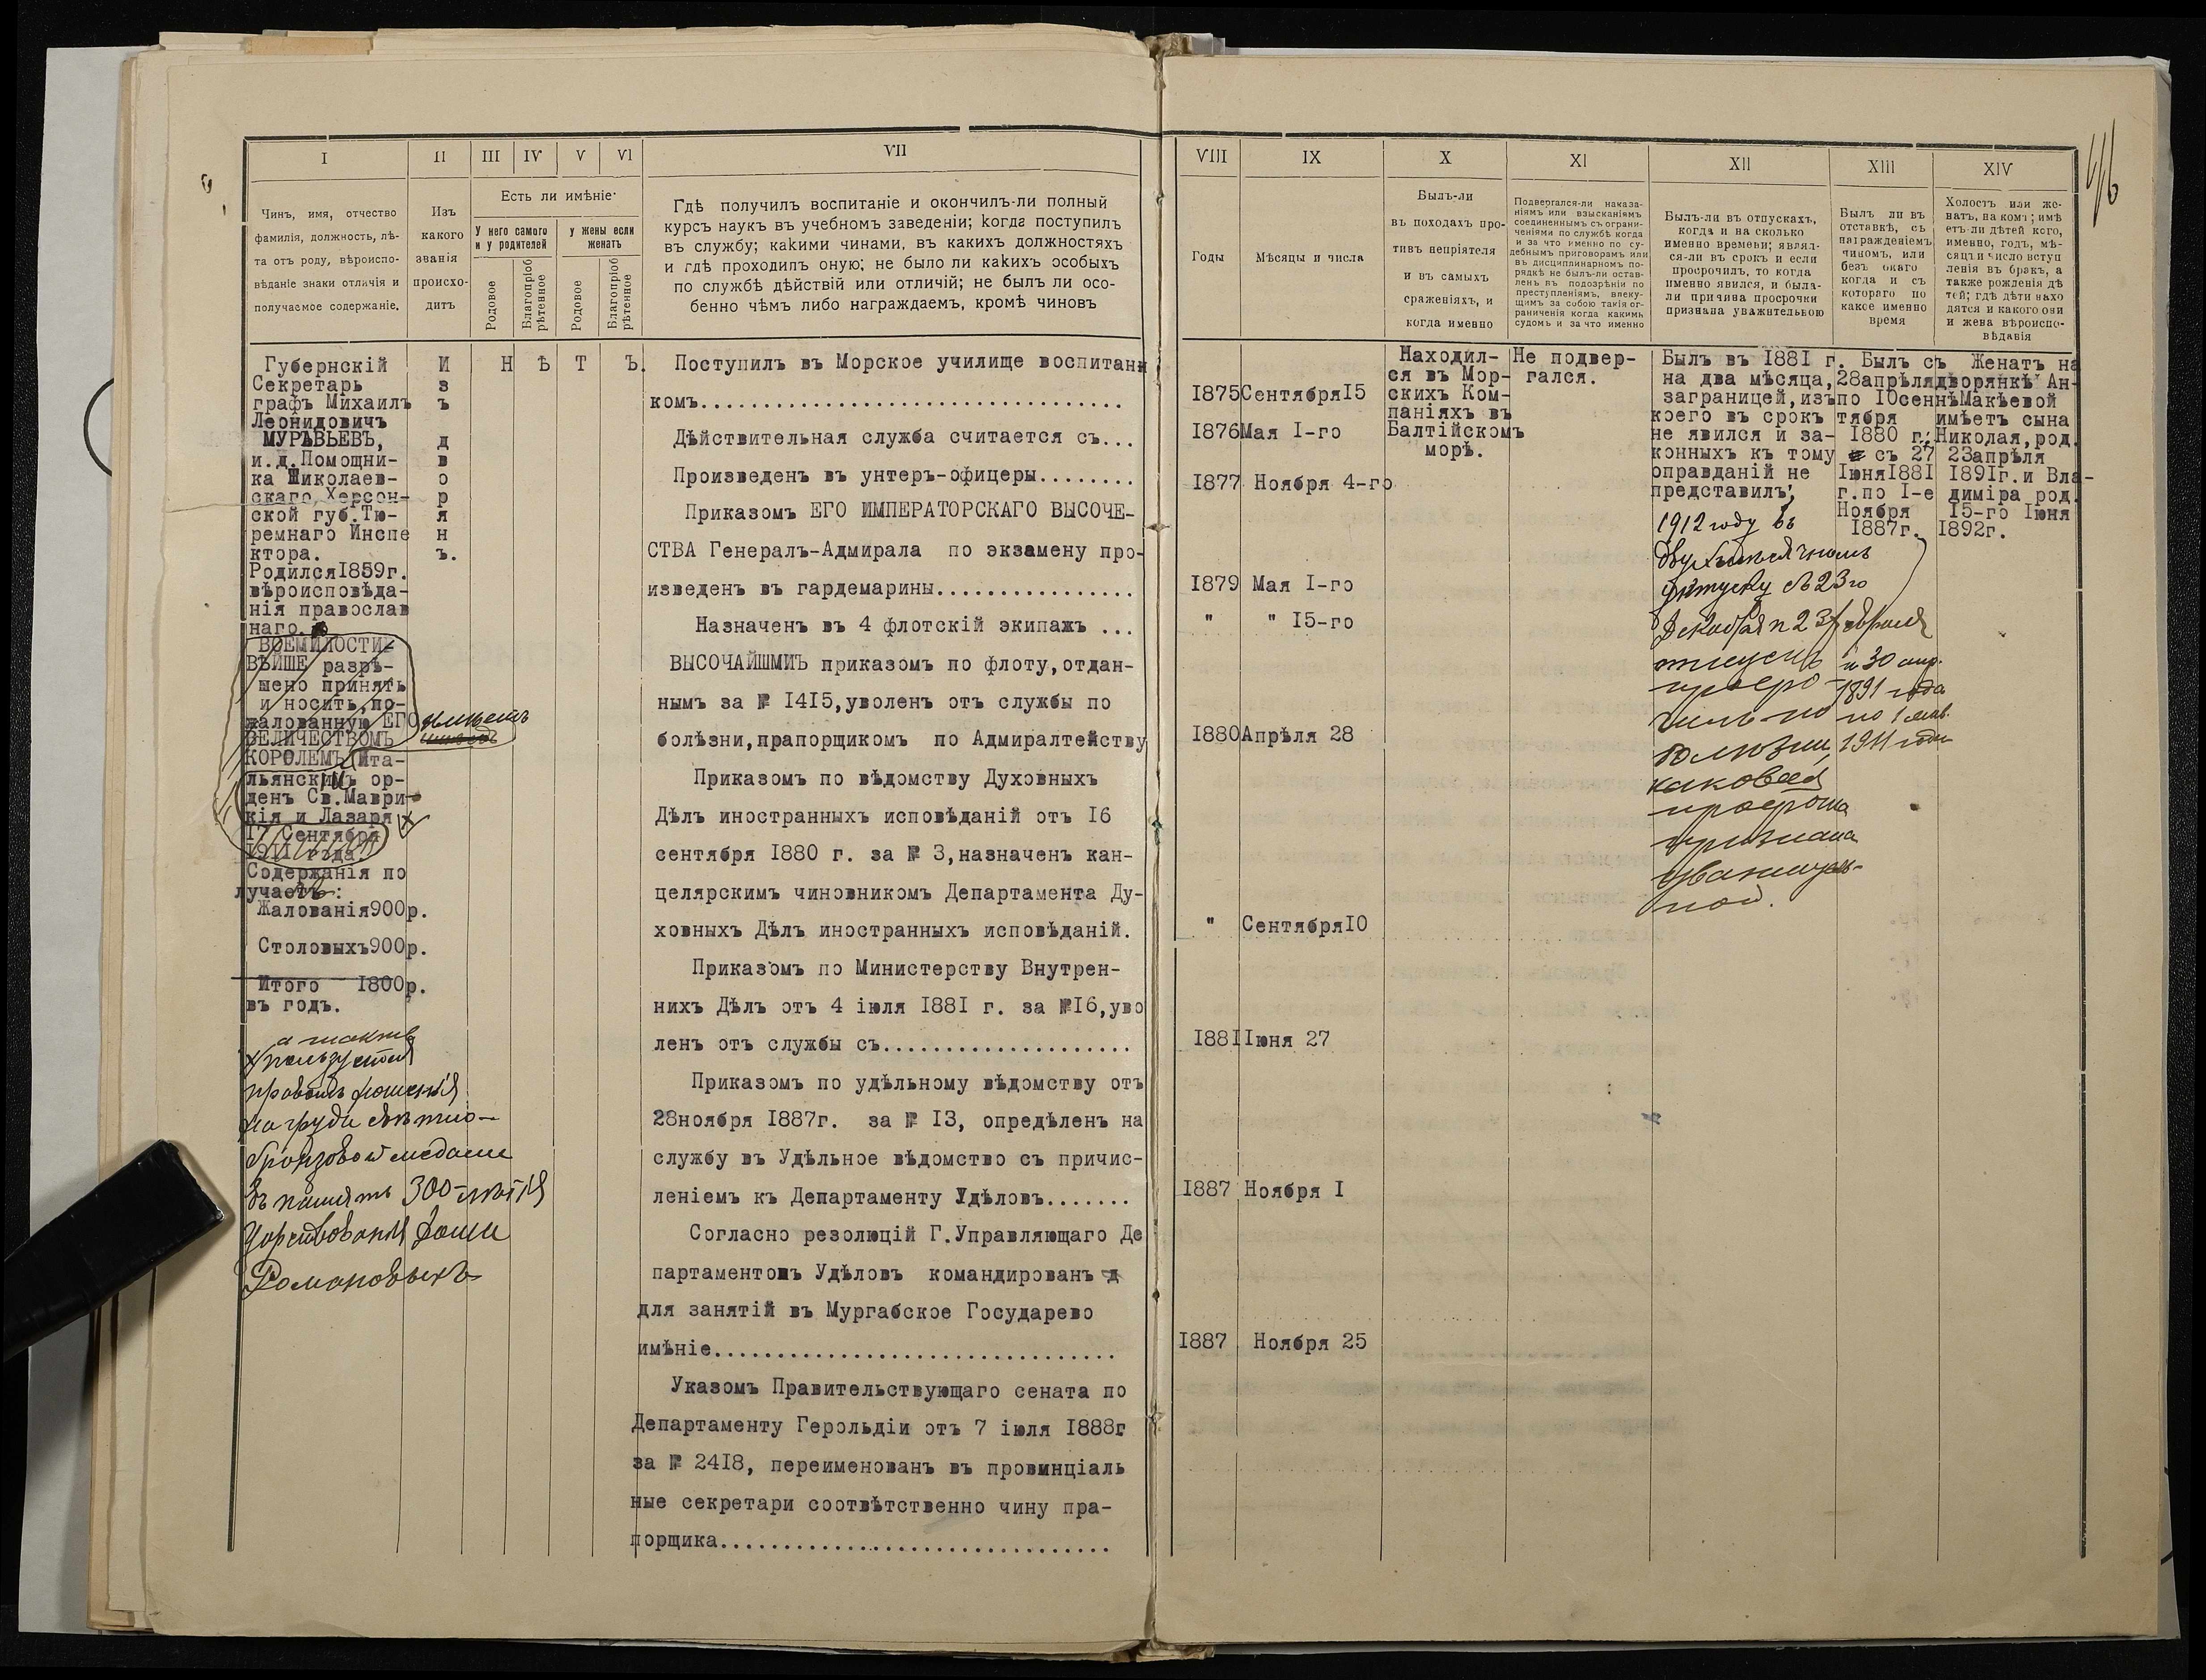 446
I
II
III
IV
V
VI
VII
Чинъ, имя, отчество
фамилія, должность, лѣ-
та отъ роду, вѣроиспо-
вѣданіе знаки отличія и
получаемое содержаніе.
Изъ
какого
званія
происхо-
дитъ
Есть ли имѣніе
У него самого
и у родителей
у жены если
женатъ
Родовое
Благопріоб
рѣтенное
Родовое
Благопріоб
рѣтенное
Гдѣ получилъ воспитаніе и окончилъ-ли полный
курсъ наукъ въ учебномъ заведеніи; когда поступилъ
въ службу; какими чинами, въ какихъ должностяхъ
и гдѣ проходилъ оную; не было ли какихъ особыхъ
по службѣ дѣйствій или отличій; не былъ ли осо-
бенно чѣмъ либо награждаемъ, кромѣ чиновъ
Губернскій
Секретарь
графъ Михаилъ
Леонидовичъ
МУРАВЬЕВЪ,
и.д.Помощни-
ка Николаев-
скаго, Херсон-
ской губ. Тю-
ремнаго Инспе
ктора.
Родился 1859г.
вѣроисповѣда-
нія православ
наго.
ВСЕМИЛОСТИ-
ВѢЙШЕ разрѣ-
шено принять
и носить, по-
жалованную ЕГО
ВЕЛИЧЕСТВОМЪ
КОРОЛЕМЪ Ита-
льянскимъ ор-
денъ Св.Маври-
кія и Лазаря
17 Сентября
1911 года.
имѣетъ
Содержанія по
лучаетъ:
Жалованія 900р.
Столовыхъ 900р.
Итого 1800р.
въ годъ.
а также
х пользуется
правомъ ношенія
на груди свѣтло-
бронзовой медали
въ память 300-лѣтія
Царствованія Дома
Романовыхъ
И
з
ъ
д
в
о
р
я
н
ъ.
Н Ѣ Т Ъ.
Поступилъ въ Морское училище воспитанн
комъ..................................
Дѣйствительная служба считается съ...
Произведенъ въ унтеръ-офицеры........
Приказомъ ЕГО ИМПЕРАТОРСКАГО ВЫСОЧЕ-
СТВА Генералъ-Адмирала по экзамену про-
изведенъ въ гардемарины................
Назначенъ въ 4 флотскій экипажъ ...
ВЫСОЧАЙШМИЪ приказомъ по флоту, отдан-
нымъ за № 1415, уволенъ отъ службы по
болѣзни, прапорщикомъ по Адмиралтейству
Приказомъ по вѣдомству Духовныхъ
Дѣлъ иностранныхъ исповѣданій отъ 16
сентября 1880 г. за № 3, назначенъ кан-
целярскимъ чиновникомъ Департамента Ду-
ховныхъ Дѣлъ иностранныхъ исповѣданій.
Приказомъ по Министерству Внутрен-
нихъ Дѣлъ отъ 4 іюля 1881 г. за №16, уво
ленъ отъ службы съ....................
Приказомъ по удѣльному вѣдомству отъ
28ноября 1887г. за № 13, опредѣленъ на
службу въ Удѣльное вѣдомство съ причис-
леніемъ къ Департаменту Удѣловъ.......
Согласно резолюцій Г.Управляющаго Де
партаментомъ Удѣловъ командированъ д
для занятій въ Мургабское Государево
имѣніе................................
Указомъ Правительствующаго сената по
Департаменту Герольдіи отъ 7 іюля 1888г
за № 2418, переименованъ въ провинціаль
ные секретари соотвѣтственно чину пра-
порщика...............................
VIII
IX
X
XI
XII
XIII
XIV
Годы
Мѣсяцы и числа
Былъ-ли
въ походахъ про-
тивъ непріятеля
и въ самыхъ
сраженіяхъ, и
когда именно
Подвергался-ли наказа-
ніямъ или взысканіямъ
соединеннымъ съ ограни-
ченіями по службѣ когда
и за что именно по су-
дебнымъ приговорамъ или
въ дисциплинарномъ по-
рядкѣ не былъ-ли остав-
ленъ въ подозрѣніи по
преступленіямъ, влеку-
щимъ за собою такія ог-
раниченія когда какимъ
судомъ и за что именно
Былъ-ли въ отпускахъ,
когда и на сколько
именно времени; являл-
ся-ли въ срокъ и если
просрочилъ, то когда
именно явился, и была-
ли причина просрочки
признана уважительною
Былъ ли въ
отставкѣ, съ
награжденіемъ
чиномъ, или
безъ онаго
когда и съ
котораго по
какое именно
время
Холостъ или же-
натъ, на комъ; имѣ
етъ-ли дѣтей кого,
именно, годъ, мѣ-
сяцъ и число вступ
ленія въ бракъ, а
также рожденія дѣ
тей; гдѣ дѣти нахо
дятся и какого они
и жена вѣроиспо-
вѣданія
1875 Сентября 15
1876 Мая 1-го
1877 Ноября 4-го
1879 Мая 1-го
" " 15-го
1880 Апрѣля 28
" Сентября 10
1881 Іюня 27
1887 Ноября 1
1887 Ноября 25
Находил-
ся въ Мор-
скихъ Ком-
паніяхъ въ
Балтійскомъ
морѣ.
Не подвер-
гался.
Былъ въ 1881 г.
на два мѣсяца,
заграницей, изъ
коего въ срокъ
не явился и за-
конныхъ къ тому
оправданій не
представилъ;
1912 году въ
двухмѣсячномъ
отпуску съ 23го
Декабря п 23 февраля
отпускъ
просро-
чилъ по
болѣзни,
каковая
просрочка
признана
уважитель-
ной.
Былъ съ
28апрѣля
по 10сен
тября
1880 г.;
съ 27
Іюня1881
г.по 1-е
Ноября
1887г.
и 30 апр.
1891 года
по 1 янв.
1911 года
Женатъ на
дворянкѣ Ан-
нѣ Макѣевой
имѣетъ сына
Николая, род.
23апрѣля
1891г. и Вла-
диміра род.
15-го Іюня
1892г.